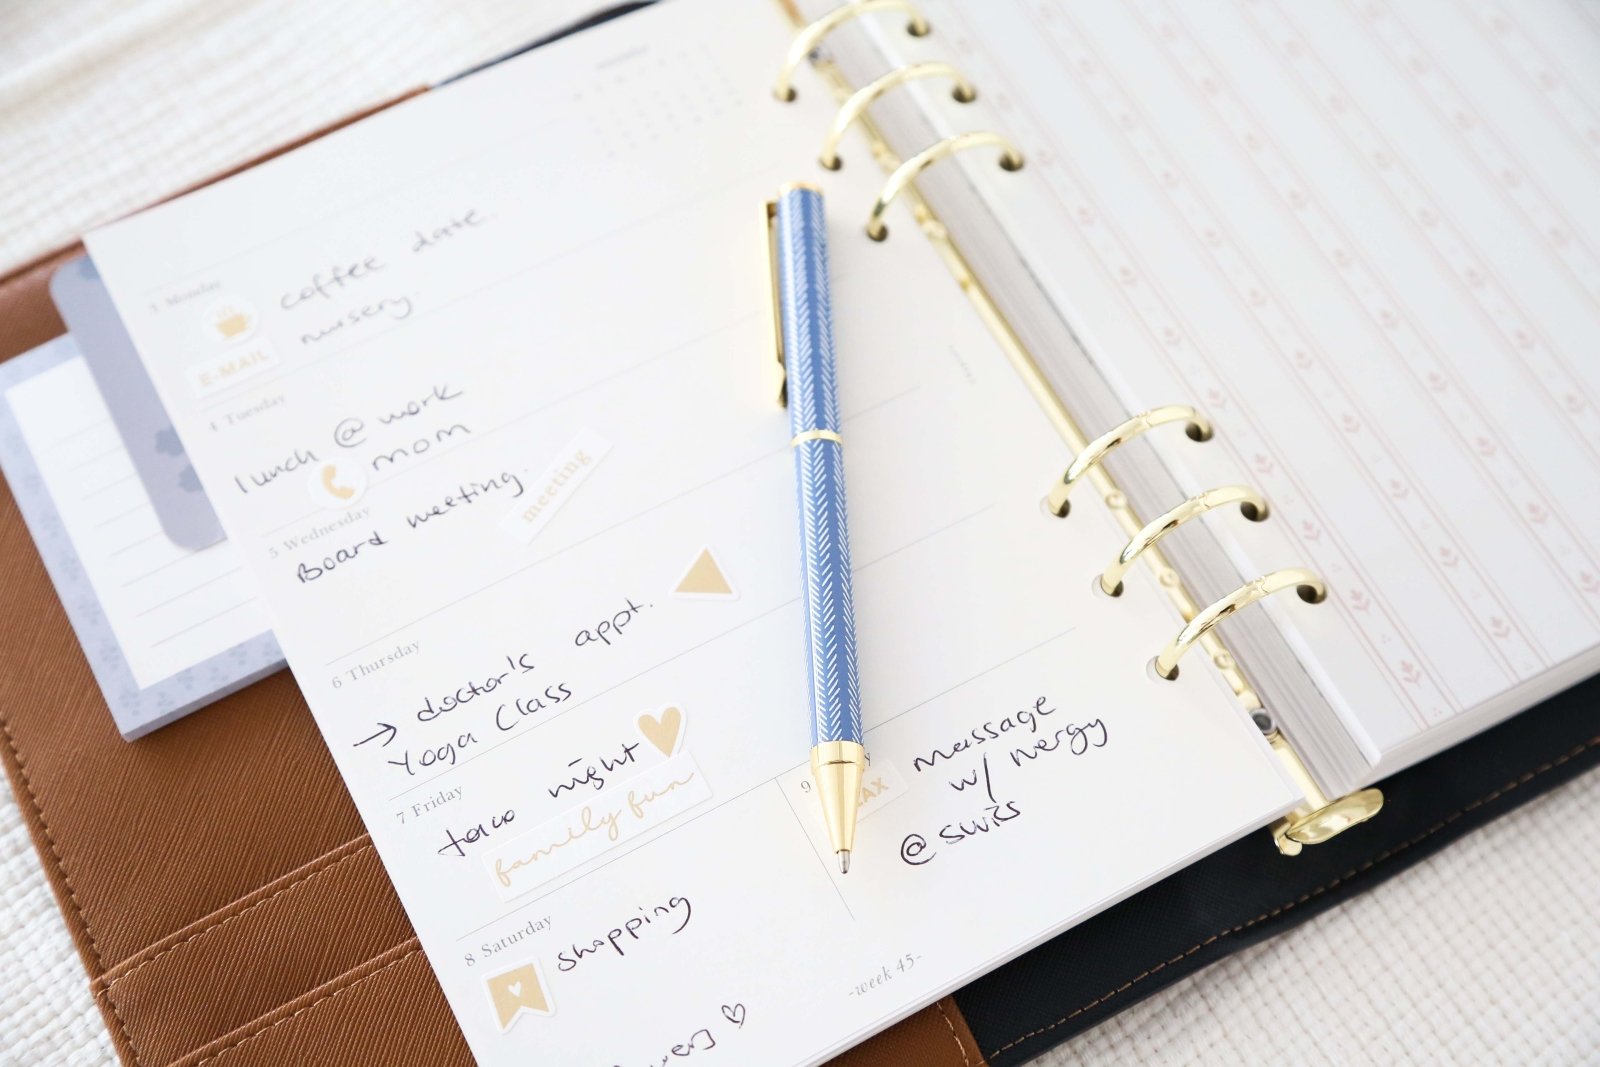 Monday
coffee date
nursery
E-MAIL
4 Tuesday
lunch @ work
mom
5 Wednesday
Board meeting.
meeting
6 Thursday
→ doctor's appt.
Yoga Class
7 Friday
taco night
family fun
8 Saturday
shopping
9
massage
w/
@ swiss
-week 45-